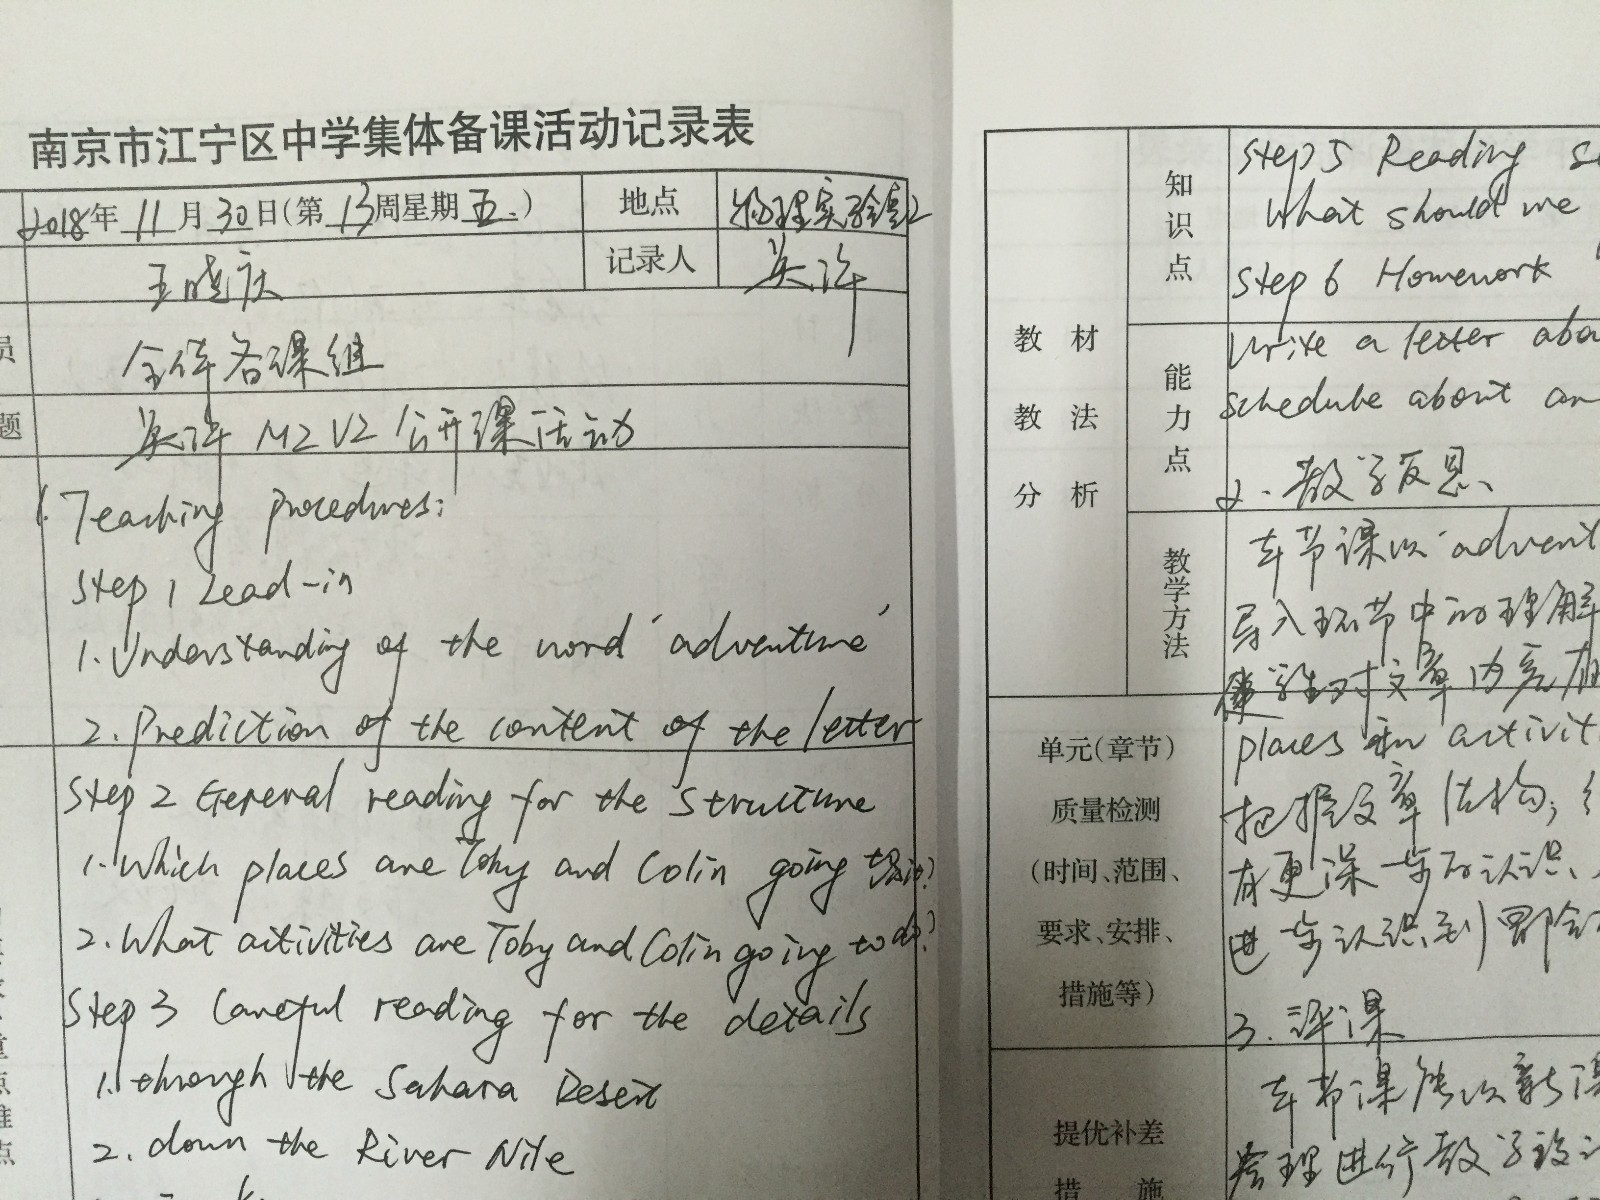 南京市江宁区中学集体备课活动记录表
2018年 11 月 30 日(第 13 周星期 五 )
地点
物理实验室2
王晓庆
记录人
英许
员
全体备课组
题
英许 M2 U2 公开课活动
1. Teaching procedures:
Step 1 Lead-in
1. Understanding of the word 'adventure'
2. Prediction of the content of the letter
Step 2 General reading for the structure
1. Which places are Toby and Colin going to visit?
2. What activities are Toby and Colin going to do?
Step 3 Careful reading for the details
1. through the Sahara Desert
2. down the River Nile
重
点
难
点
教 材
教 法
分 析
知
识
点
Step 5 Reading
What should we
Step 6 Homework
能
力
点
Write a letter
schedule about
2. 教学反思、
教
学
方
法
本节课以
导入环节中的理解
使学生对文章内容有
单元(章节)
质量检测
(时间、范围、
要求、安排、
措施等)
places 和
把握文章结构;
有更深一步的认识、
进一步认识到
3. 评课
提优补差
措 施
本节课能以新课
合理进行教学设计